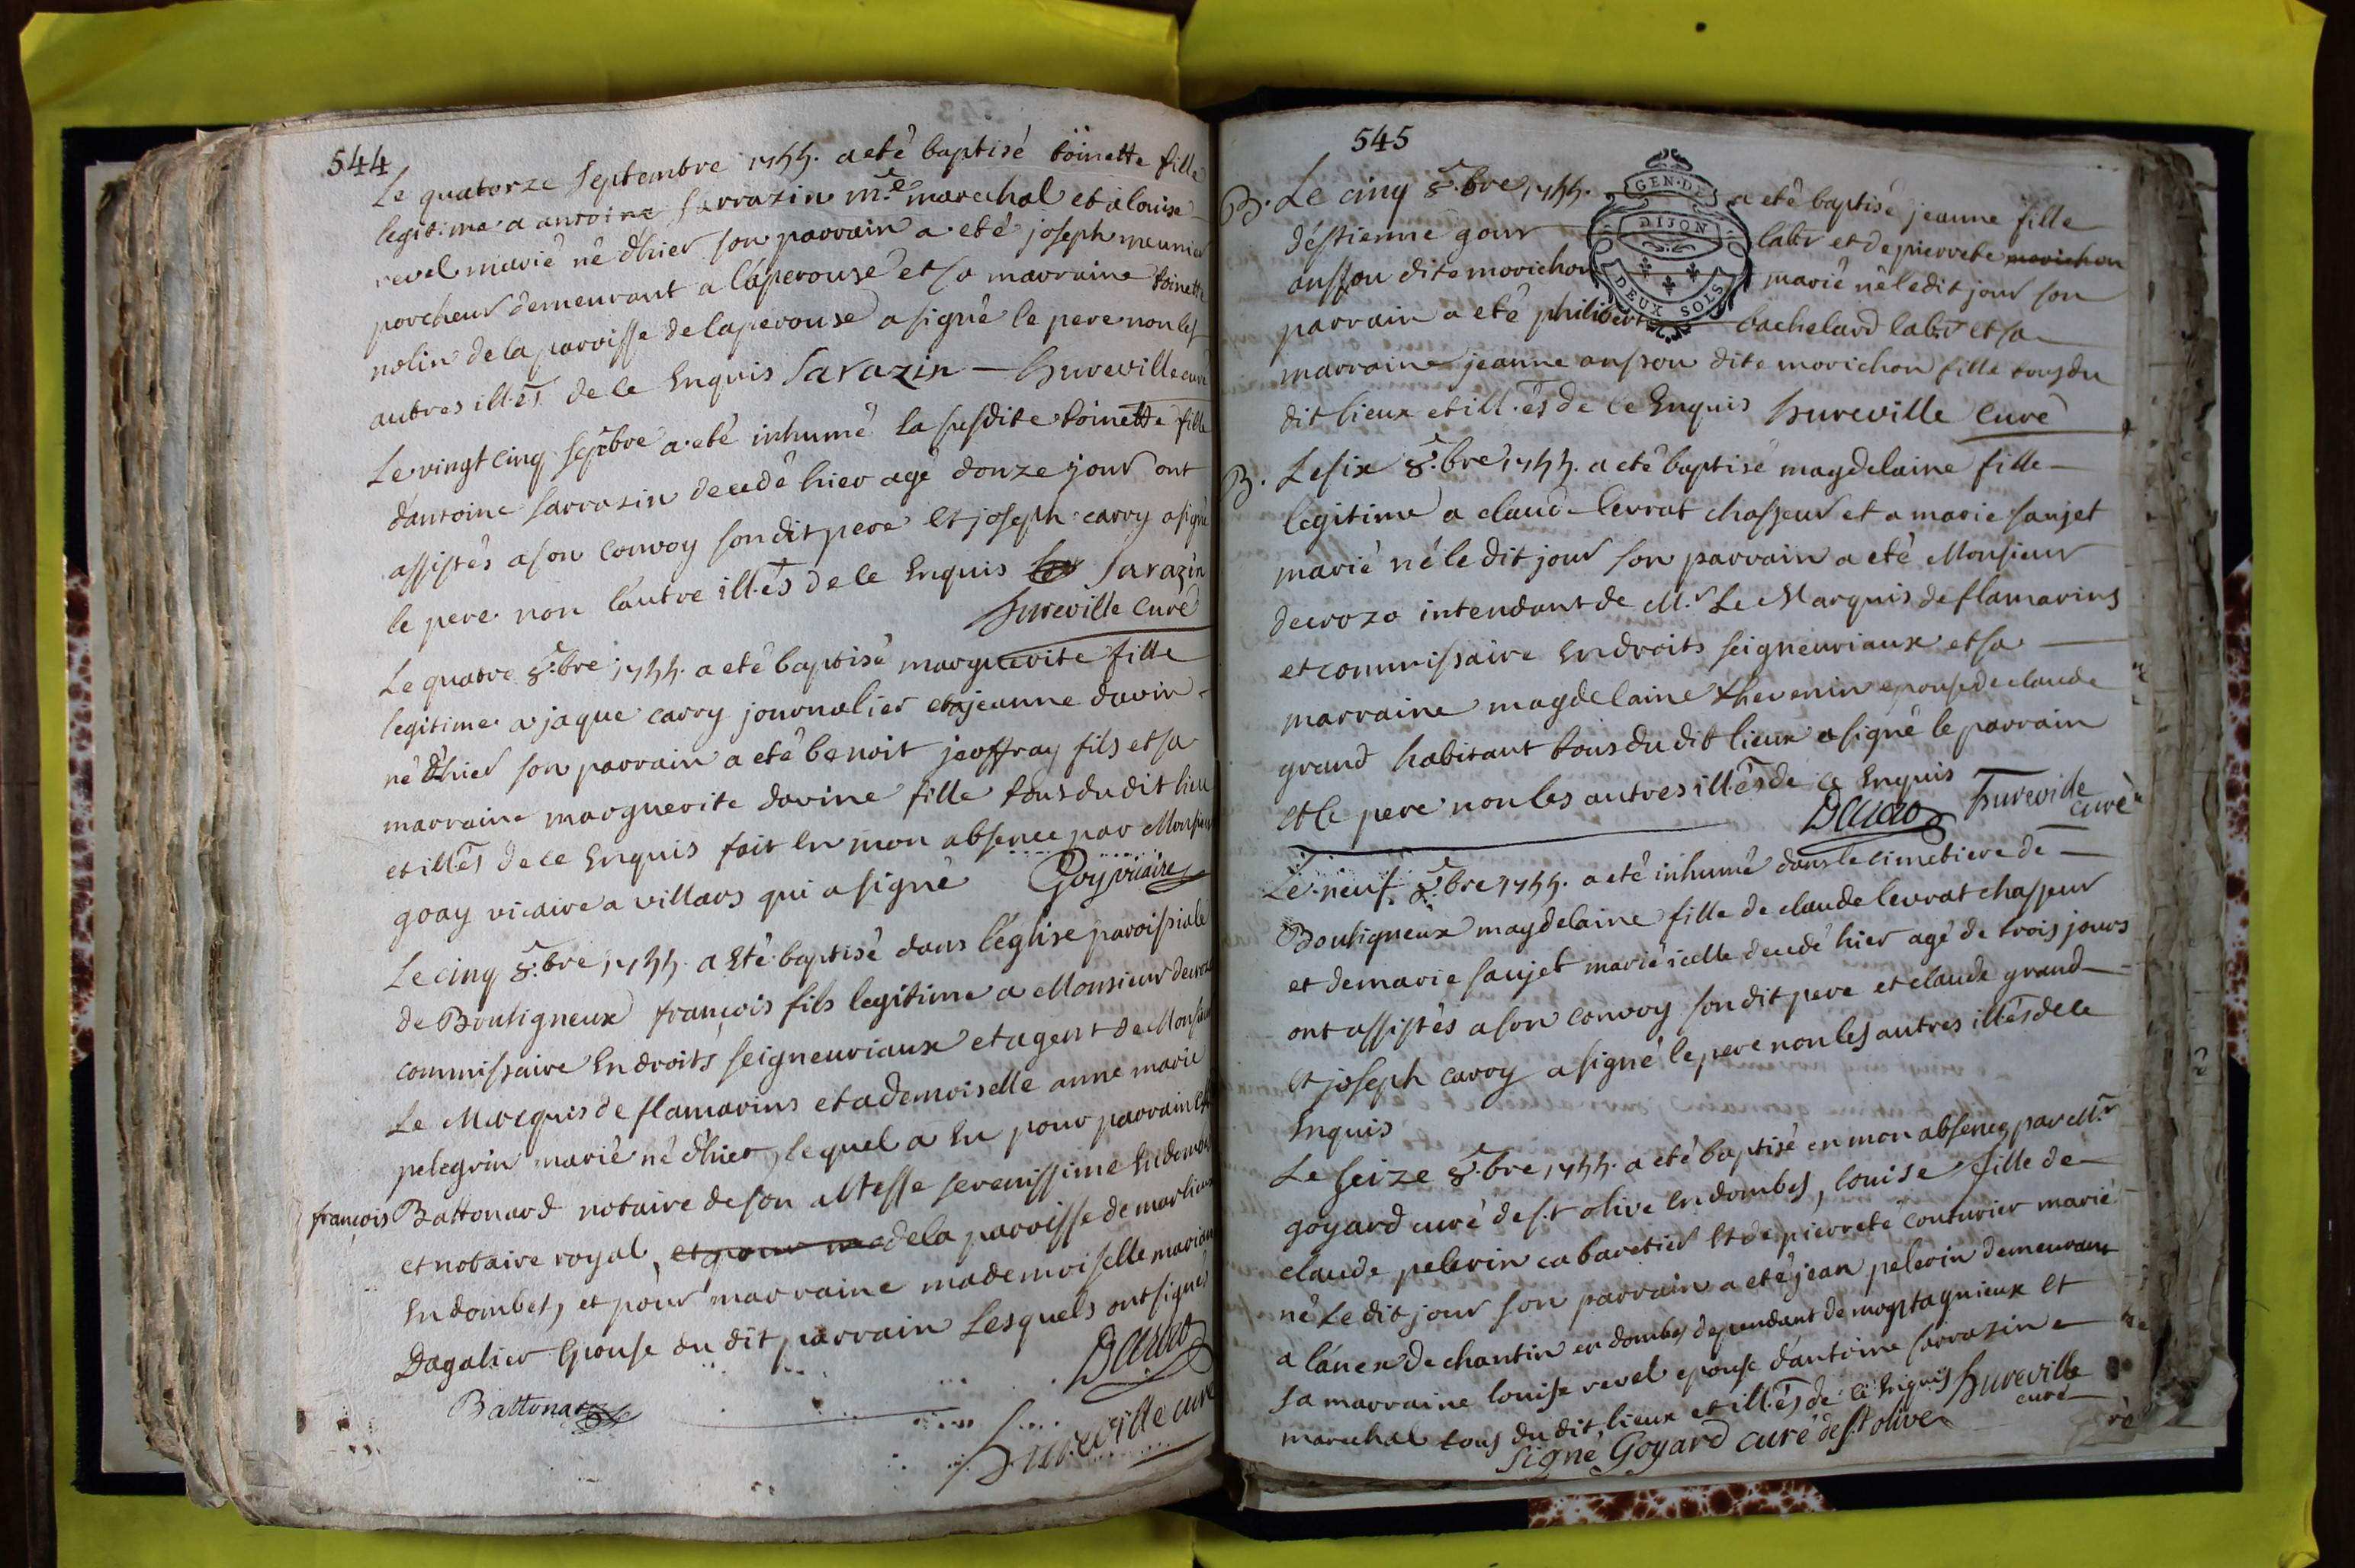 544
Le quatorze septembre 1755. a eté baptisé toinette fille
legitime a antoine sarrazin m.e marechal et a louise
revel marié né d'hier son parrain a eté joseph meunier
porcheur demeurant a laperouse et sa marraine toinette
nolin de la parroisse de laperouse a signé le pere non les
autres ill.és de ce Enquis Sarazin — hureville curé
Le vingt cinq sepbre a eté inhumé la susdite toinette fille
d'antoine sarrazin decedé hier agé donze jour ont
assistés a son convoy son dit pere et joseph carry a signé
le pere non lautre ill.és de ce Enquis Sarazin
hureville curé
Le quatre 8.bre 1755. a eté baptisé marguerite fille
legitime a jaque carry journalier et a jeanne davin
né d'hier son parrain a eté benoit jeoffray fils et sa
marraine marguerite davine fille tous du dit lieu
et illés de ce Enquis fait en mon absence par Monsieur
goay vicaire a villars qui a signé Goy vicaire
Le cinq 8.bre 1755. a Eté baptisé dans léglise paroissiale
de Bouligneux françois fils legitime a Monsieur decrozo
commissaire En droits seigneuriaux et agent de Monsieur
Le Marquis de flamarins et a demoiselle anne marie
pelegrin marié né d'hier, lequel a Eu pour parrain
françois Battonard notaire de son altesse serenissime En dombes
et notaire royal, et pour ma de la parroisse de marlieux
En dombes, et pour marraine mademoiselle
Dagalier Epouse du dit parrain Lesquels ont signés
Battonard
hureville curé
545
B. Le cinq 8.bre 1755. a eté baptisé jeanne fille
GEN. DE
DIJON
DEUX SOLS
d'éstienne gour labr et de pierrete morichon
anssou dite morichon marié né le dit jour son
parrain a eté philibert bachelard labr et sa
marraine jeanne anssou dite morichon fille tous du
dit lieux et ill.és de ce Enquis hureville Curé
B. Le six 8.bre 1755. a eté baptisé magdelaine fille
legitime a claude levrat chasseur et a marie saujet
marié né le dit jour son parrain a eté Monsieur
decrozo intendant de M.r Le Marquis de flamarins
et commissaire En droits seigneuriaux et sa
marraine magdelaine thevenin epouse de claude
grand habitant tous du dit lieux a signé le parrain
et le pere non les autres ill.és de ce Enquis
hureville
curé
Le neuf 8.bre 1755. a eté inhumé dans le cimetiere de
Bouligneux magdelaine fille de claude levrat chasseur
et de marie saujet marié icelle decedé hier agé de trois jours
ont assistés a son convoy son dit pere et claude grand
et joseph carry a signé le pere non les autres illés de ce
Enquis
Le seize 8.bre 1755. a eté baptisé en mon absence par M.r
goyard curé de s.t olive en dombes, louise fille de
claude pelerin cabaretier et de pierrete couturier marié
né Le dit jour son parrain a eté jean pelerin demeurant
a lánex de chantin en dombes dependant de montagnieux et
sa marraine louise revel epouse d'antoine sarrazin
marechal tous du dit lieux et ill.és de ce Enquis hureville
curé
Signé Goyard curé de s.t olive